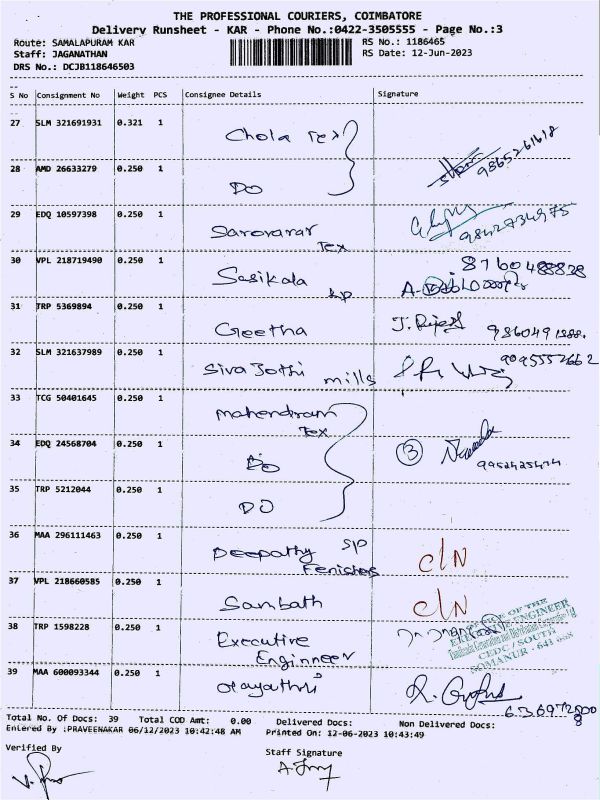 THE PROFESSIONAL COURIERS, COIMBATORE
Delivery Runsheet - KAR - Phone No.:0422-3505555 - Page No.:3
Route: SAMALAPURAM KAR
RS No.: 1186465
Staff: JAGANATHAN
RS Date: 12-Jun-2023
DRS No.: DCJB118646503
S No Consignment No Weight PCS Consignee Details Signature
27 SLM 321691931 0.321 1 Chola Tex
28 AMD 26633279 0.250 1 DO 9865261618
29 EDQ 10597398 0.250 1 Sarovarar Tex 9842734975
30 VPL 218719490 0.250 1 Sasikala 8760488828
31 TRP 5369894 0.250 1 Geetha
32 SLM 321637989 0.250 1 Siva Jothi mills 9095552662
33 TCG 50401645 0.250 1 Mahendram Tex
34 EDQ 24568704 0.250 1 DO 3
35 TRP 5212044 0.250 1 DO
36 MAA 296111463 0.250 1 Deepathy SP Fenishes C/N
37 VPL 218660585 0.250 1 Sambath C/N
38 TRP 1598228 0.250 1 Executive Enginneer
CEDC / SOUTH
SOMANUR - 641 668
39 MAA 600093344 0.250 1 Gayathri
Total No. Of Docs: 39 Total COD Amt: 0.00 Delivered Docs: Non Delivered Docs:
Entered By :PRAVEENAKAR 06/12/2023 10:42:48 AM Printed On: 12-06-2023 10:43:49
Verified By
Staff Signature